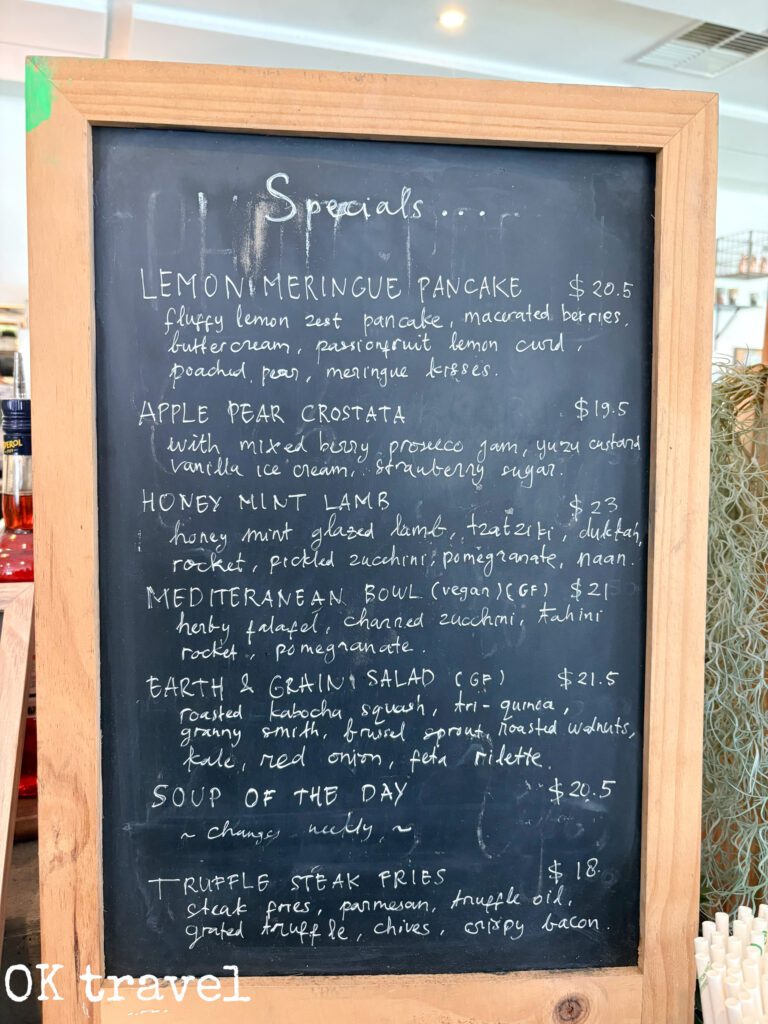 Specials ...
LEMON MERINGUE PANCAKE $20.5
fluffy lemon zest pancake, macerated berries,
buttercream, passionfruit lemon curd,
poached pear, meringue kisses.
APPLE PEAR CROSTATA $19.5
with mixed berry prosecco jam, yuzu custard
vanilla ice cream, strawberry sugar.
HONEY MINT LAMB $23
honey mint glazed lamb, tzatziki, dukkah,
rocket, pickled zucchini, pomegranate, naan.
MEDITERANEAN BOWL (vegan) (GF) $21
herby falafel, charred zucchini, tahini
rocket, pomegranate.
EARTH & GRAIN SALAD (GF) $21.5
roasted kabocha squash, tri-quinoa,
granny smith, brussel sprout, roasted walnuts,
kale, red onion, feta rilette.
SOUP OF THE DAY $20.5
~ changes weekly ~
TRUFFLE STEAK FRIES $18
steak fries, parmesan, truffle oil,
grated truffle, chives, crispy bacon.
OK travel